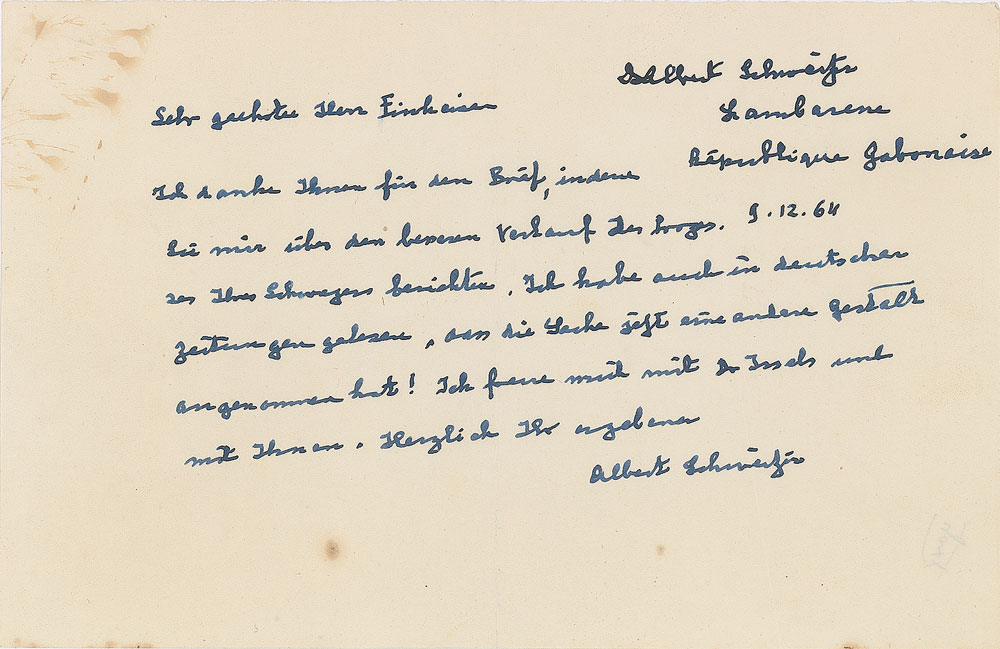 Dr Albert Schweitzer
Lambarene
République Gabonaise
9.12.64
Sehr geehrter Herr Einheiser
Ich danke Ihnen für den Brief, in dem
Sie mir über den besseren Verlauf des Prozes-
ses Ihres Schwagers berichten. Ich habe auch in deutschen
Zeitungen gelesen, dass die Sache jetzt eine andere Gestalt
angenommen hat! Ich freue mich mit Dr Issels und
mit Ihnen. Herzlich Ihr ergebener
Albert Schweitzer